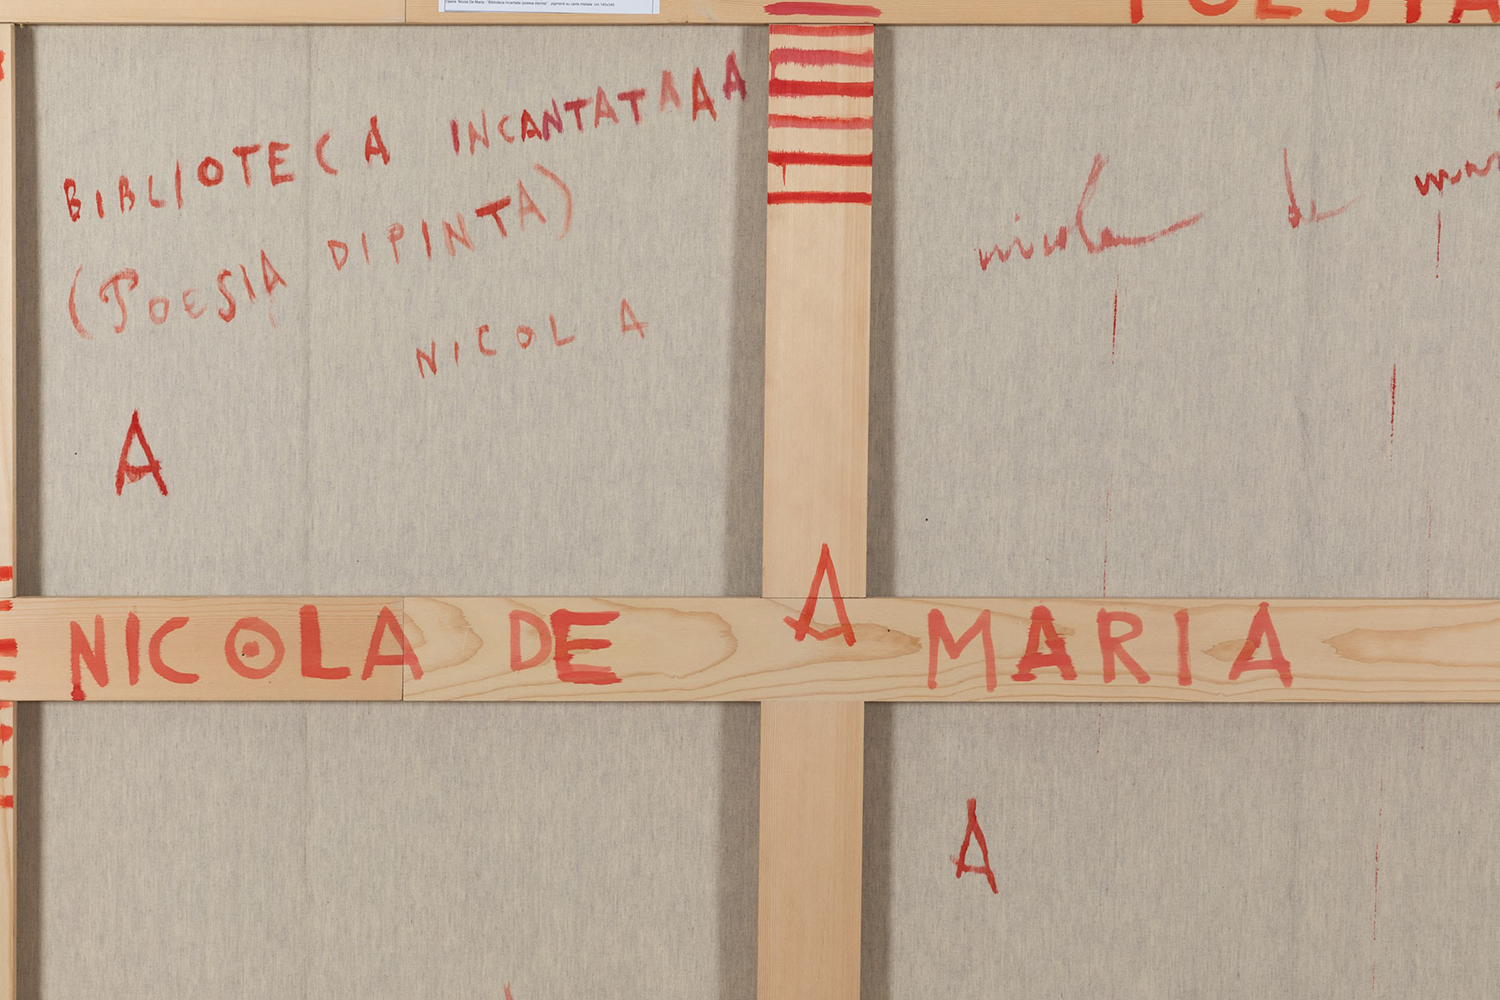 POESIA
BIBLIOTECA INCANTATAAA
(POESIA DIPINTA)
NICOLA
A
nicola de
A
NICOLA DE MARIA
A